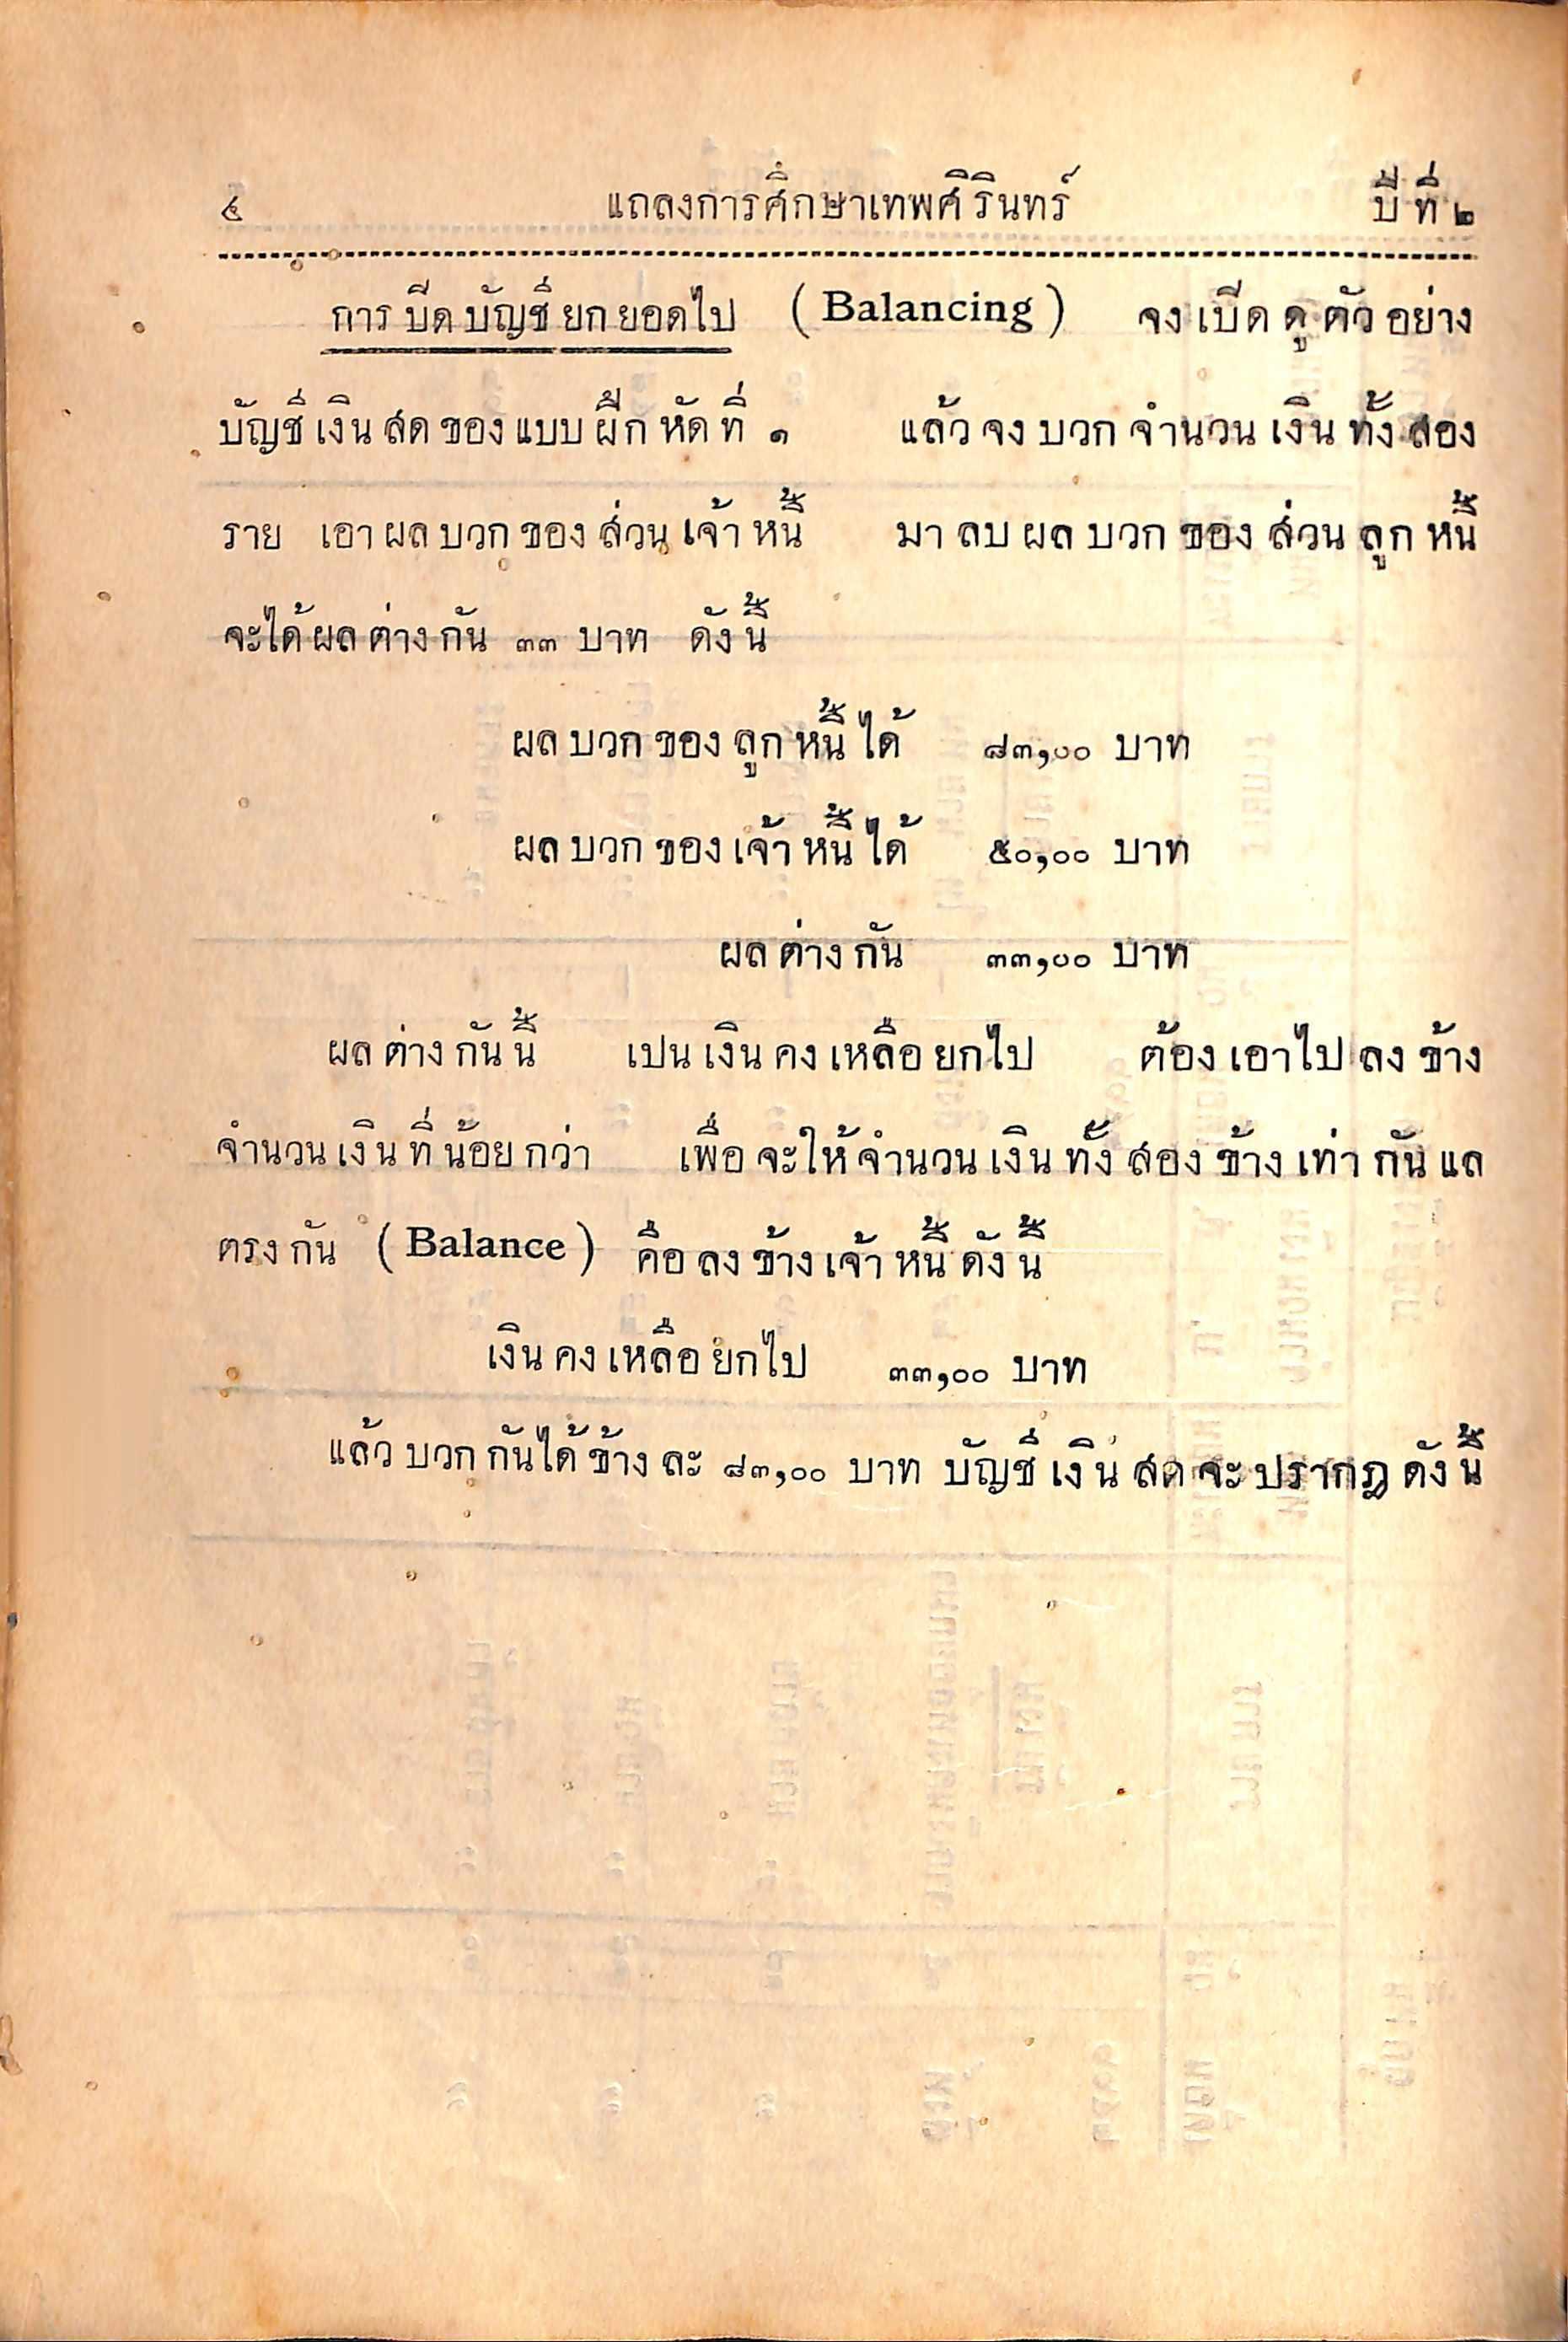 ๔ แถลงการศึกษาเทพศิรินทร์ ปีที่ ๒
การปีดบัญชียกยอดไป (Balancing) จงเปีดดูตัวอย่าง
บัญชีเงินสดของแบบฝึกหัดที่ ๑ แล้วจงบวกจำนวนเงินทั้งสอง
ราย เอาผลบวกของส่วนเจ้าหนี้ มาลบผลบวกของส่วนลูกหนี้
จะได้ผลต่างกัน ๓๓ บาท ดังนี้
ผลบวกของลูกหนี้ได้ ๘๓,๐๐ บาท
ผลบวกของเจ้าหนี้ได้ ๕๐,๐๐ บาท
ผลต่างกัน ๓๓,๐๐ บาท
ผลต่างกันนี้ เปนเงินคงเหลือยกไป ต้องเอาไปลงข้าง
จำนวนเงินที่น้อยกว่า เพื่อจะให้จำนวนเงินทั้งสองข้างเท่ากันแล
ตรงกัน (Balance) คือลงข้างเจ้าหนี้ดังนี้
เงินคงเหลือยกไป ๓๓,๐๐ บาท
แล้วบวกกันได้ข้างละ ๘๓,๐๐ บาท บัญชีเงินสดจะปรากฎดังนี้